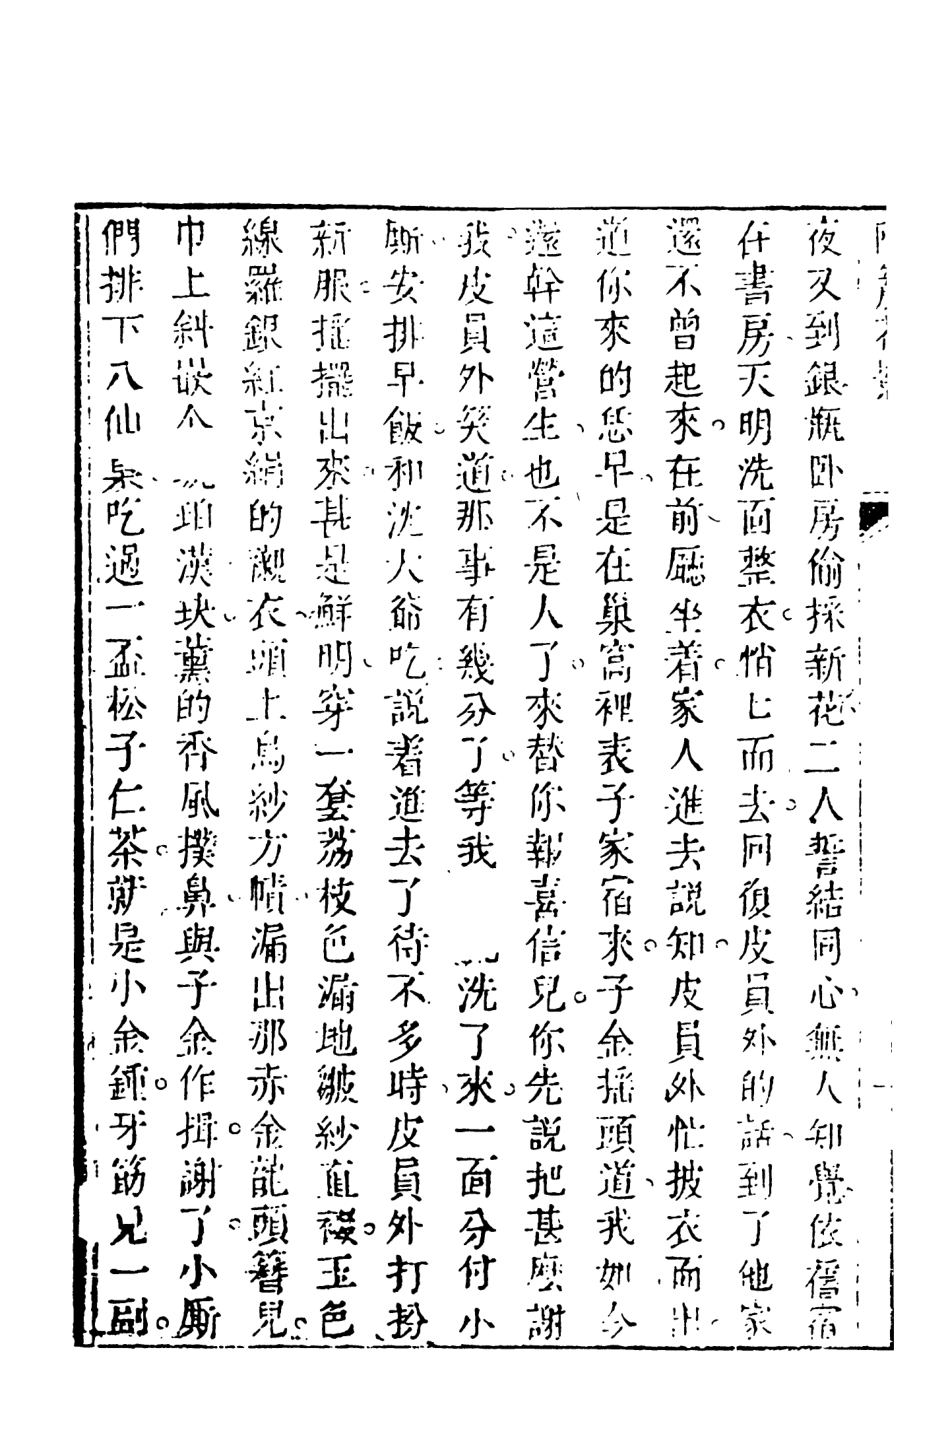 夜又到銀瓶卧房偷採新花二人誓結同心無人知覺依舊宿
在書房天明洗面整衣悄七而去回復皮員外的話到了他家
還不曾起來在前廳坐着家人進去說知皮員外忙披衣而出
道你來的恁早是在巢窩裡表子家宿來子金摇頭道我如今
還幹這營生也不是人了來替你報喜信兒你先說把甚麽謝
我皮員外笑道那事有幾分了等我洗了來一面分付小
厮安排早飯和沈大爺吃說着進去了待不多時皮員外打扮
新服摇擺出來甚是鮮明穿一套荔枝色漏地皺紗直裰玉色
線羅銀紅京絹的襯衣頭上烏紗方幘漏出那赤金龍頭簪兒
巾上斜嵌个珀漢玦薰的香風撲鼻與子金作揖謝了小厮
們排下八仙桌吃過一盃松子仁茶就是小金鍾牙筯兒一副